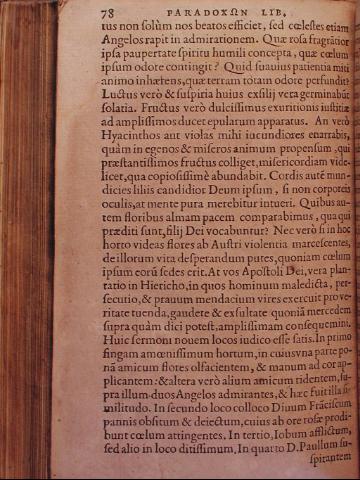 78 PARADOXΩN LIB.
tus non solùm nos beatos efficiet, sed cœlestes etiam
Angelos rapit in admirationem. Quæ rosa fragrãtior
ipsa paupertate spiritu humili concepta, quæ cœlum
ipsum odore contingit? Quid suauius patientia miti
animo inhærens, quæ terram totam odore perfundit?
Luctus verò & suspiria huius exsilij vera germinabũt
solatia. Fructus verò dulcissimus exuritionis iustitiæ
ad amplissimos ducet epularum apparatus. An verò
Hyacinthos aut violas mihi iucundiores enarrabis,
quàm in egenos & miseros animum propensum, qui
præstantissimos fructus colliget, misericordiam vide-
licet, qua copiosissimè abundabit. Cordis autẽ mun-
dicies liliis candidior Deum ipsum, si non corporeis
oculis, at mente pura merebitur intueri. Quibus au-
tem floribus almam pacem comparabimus, qua qui
præditi sunt, filij Dei vocabuntur? Nec verò si in hoc
horto videas flores ab Austri violentia marcescentes,
de illorum vita desperandum putes, quoniam cœlum
ipsum eorũ sedes erit. At vos Apostoli Dei, vera plan-
tatio in Hiericho, in quos hominum maledicta, per-
secutio, & prauum mendacium vires exercuit pro ve-
ritate tuenda, gaudete & exsultate quoniã mercedem
supra quàm dici potest, amplissimam consequemini.
Huic sermoni nouem locos iudico esse satis. In primo
fingam amœnissimum hortum, in cuius vna parte po-
nã amicum flores olfacientem, & manum ad cor ap-
plicantem: & altera verò alium amicum ridentem, su-
pra illum duos Angelos admirantes, & hæc fuit illa si-
militudo. In secundo loco colloco Diuum Frãciscum
pannis obsitum & deiectum, cuius ab ore rosæ prodi-
bunt cœlum attingentes. In tertio, Iobum afflictum,
sed alio in loco ditissimum. In quarto D. Paullum su-
spirantem